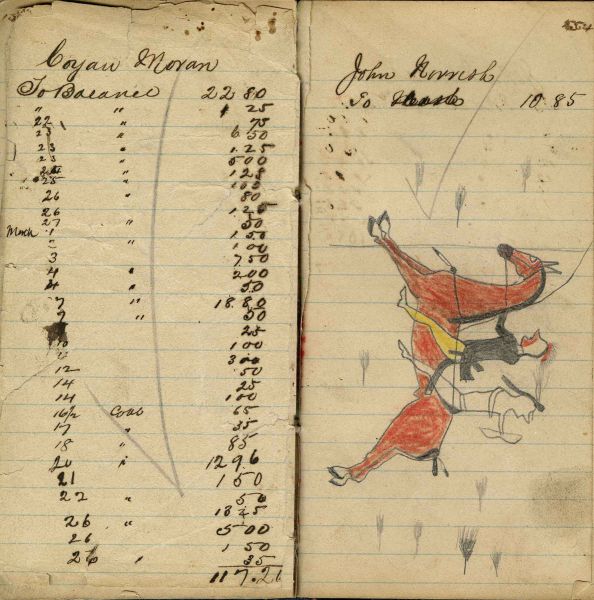 Coyau Moran
To Balance 22 80
" " 1 25
22 " 75
23 " 6 50
23 " 1.25
23 " 500
" 1 28
25 " 100
26 " 80
26
27 " 50
March 1 1 50
" " 1 00
3 7 50
4 " 2 00
4 " 50
7 " 18.80
7 " 50
25
10 1 00
3 00
12 50
14 25
14 1 00
Coal 65
17 " 35
18 " 85
20 " 12 96
21 1 50
22 " 50
18 25
26 " 5 00
26 1 50
26 " 35
117.26
John Norrish
To 10 85